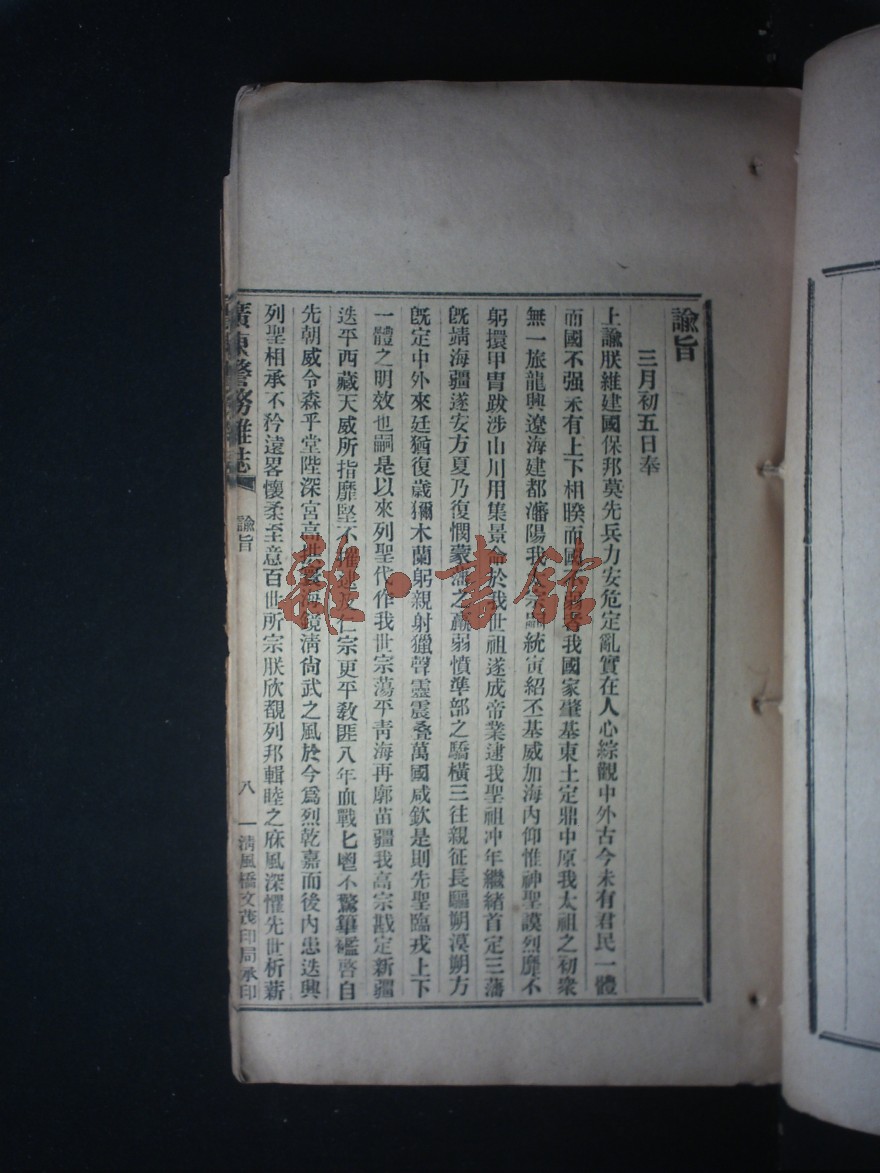 諭旨
三月初五日奉
上諭朕維建國保邦莫先兵力安危定亂實在人心綜觀中外古今未有君民一體
而國不强未有上下相睽而國不弱者我國家肇基東土定鼎中原我太祖之初衆
無一旅龍興遼海建都瀋陽我太宗嗣統寅紹丕基威加海內仰惟神聖謨烈靡不
躬擐甲冑跋涉山川用集景命於我世祖遂成帝業逮我聖祖冲年繼緒首定三藩
旣靖海疆遂安方夏乃復憫蒙藩之羸弱憤準部之驕橫三往親征長驅朔漠朔方
旣定中外來廷猶復歲獮木蘭躬親射獵聲靈震叠萬國咸欽是則先聖臨戎上下
一體之明效也嗣是以來列聖代作我世宗蕩平靑海再廓苗疆我高宗戡定新疆
迭平西藏天威所指靡堅不摧逮及仁宗更平敎匪八年血戰匕鬯不驚篳襤啓自
先朝威令森乎堂陛深宮高拱寰海鏡淸尙武之風於今爲烈乾嘉而後內患迭興
列聖相承不矜遠畧懷柔至意百世所宗朕欣覩列邦輯睦之庥風深懼先世析薪
廣東警務雜誌
諭旨
八
淸風橋文茂印局承印
雜·書館